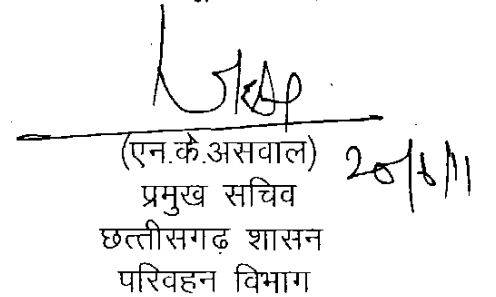 (एन.के.असवाल)
20/6/11
प्रमुख सचिव
छत्तीसगढ़ शासन
परिवहन विभाग